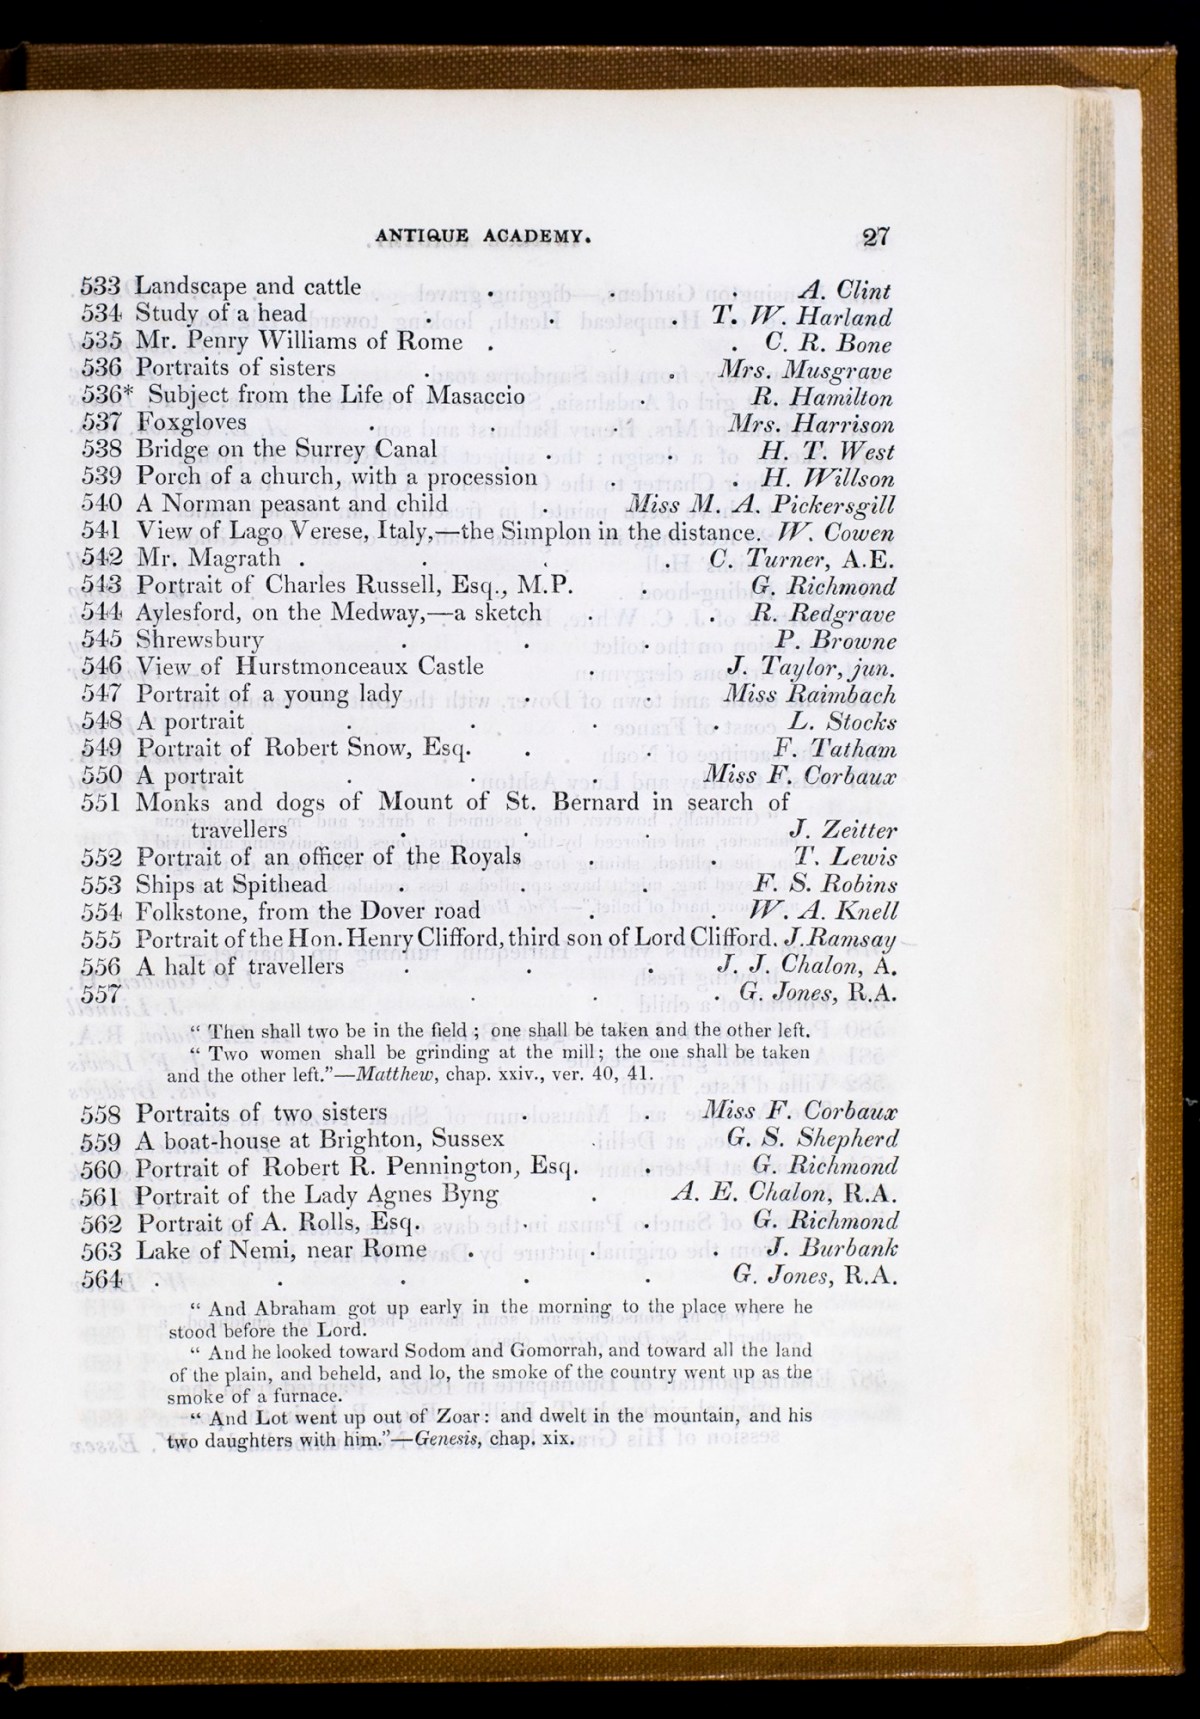 ANTIQUE ACADEMY. 27
533 Landscape and cattle . . . A. Clint
534 Study of a head . . . T. W. Harland
535 Mr. Penry Williams of Rome . . C. R. Bone
536 Portraits of sisters . . . Mrs. Musgrave
536* Subject from the Life of Masaccio . R. Hamilton
537 Foxgloves . . . Mrs. Harrison
538 Bridge on the Surrey Canal . . H. T. West
539 Porch of a church, with a procession . . H. Willson
540 A Norman peasant and child . Miss M. A. Pickersgill
541 View of Lago Verese, Italy,—the Simplon in the distance. W. Cowen
542 Mr. Magrath . . . . C. Turner, A.E.
543 Portrait of Charles Russell, Esq., M.P. . G. Richmond
544 Aylesford, on the Medway,—a sketch . . R. Redgrave
545 Shrewsbury . . . P. Browne
546 View of Hurstmonceaux Castle . . J. Taylor, jun.
547 Portrait of a young lady . . Miss Raimbach
548 A portrait . . . . L. Stocks
549 Portrait of Robert Snow, Esq. . . F. Tatham
550 A portrait . . . Miss F. Corbaux
551 Monks and dogs of Mount of St. Bernard in search of
travellers . . . J. Zeitter
552 Portrait of an officer of the Royals . . T. Lewis
553 Ships at Spithead . . . F. S. Robins
554 Folkstone, from the Dover road . . W. A. Knell
555 Portrait of the Hon. Henry Clifford, third son of Lord Clifford. J. Ramsay
556 A halt of travellers . . . J. J. Chalon, A.
557 . . . . G. Jones, R.A.
“ Then shall two be in the field ; one shall be taken and the other left.
“ Two women shall be grinding at the mill ; the one shall be taken
and the other left.”—Matthew, chap. xxiv., ver. 40, 41.
558 Portraits of two sisters . . Miss F. Corbaux
559 A boat-house at Brighton, Sussex . G. S. Shepherd
560 Portrait of Robert R. Pennington, Esq. . G. Richmond
561 Portrait of the Lady Agnes Byng . A. E. Chalon, R.A.
562 Portrait of A. Rolls, Esq. . . G. Richmond
563 Lake of Nemi, near Rome . . . J. Burbank
564 . . . . . G. Jones, R.A.
“ And Abraham got up early in the morning to the place where he
stood before the Lord.
“ And he looked toward Sodom and Gomorrah, and toward all the land
of the plain, and beheld, and lo, the smoke of the country went up as the
smoke of a furnace.
“ And Lot went up out of Zoar : and dwelt in the mountain, and his
two daughters with him.”—Genesis, chap. xix.